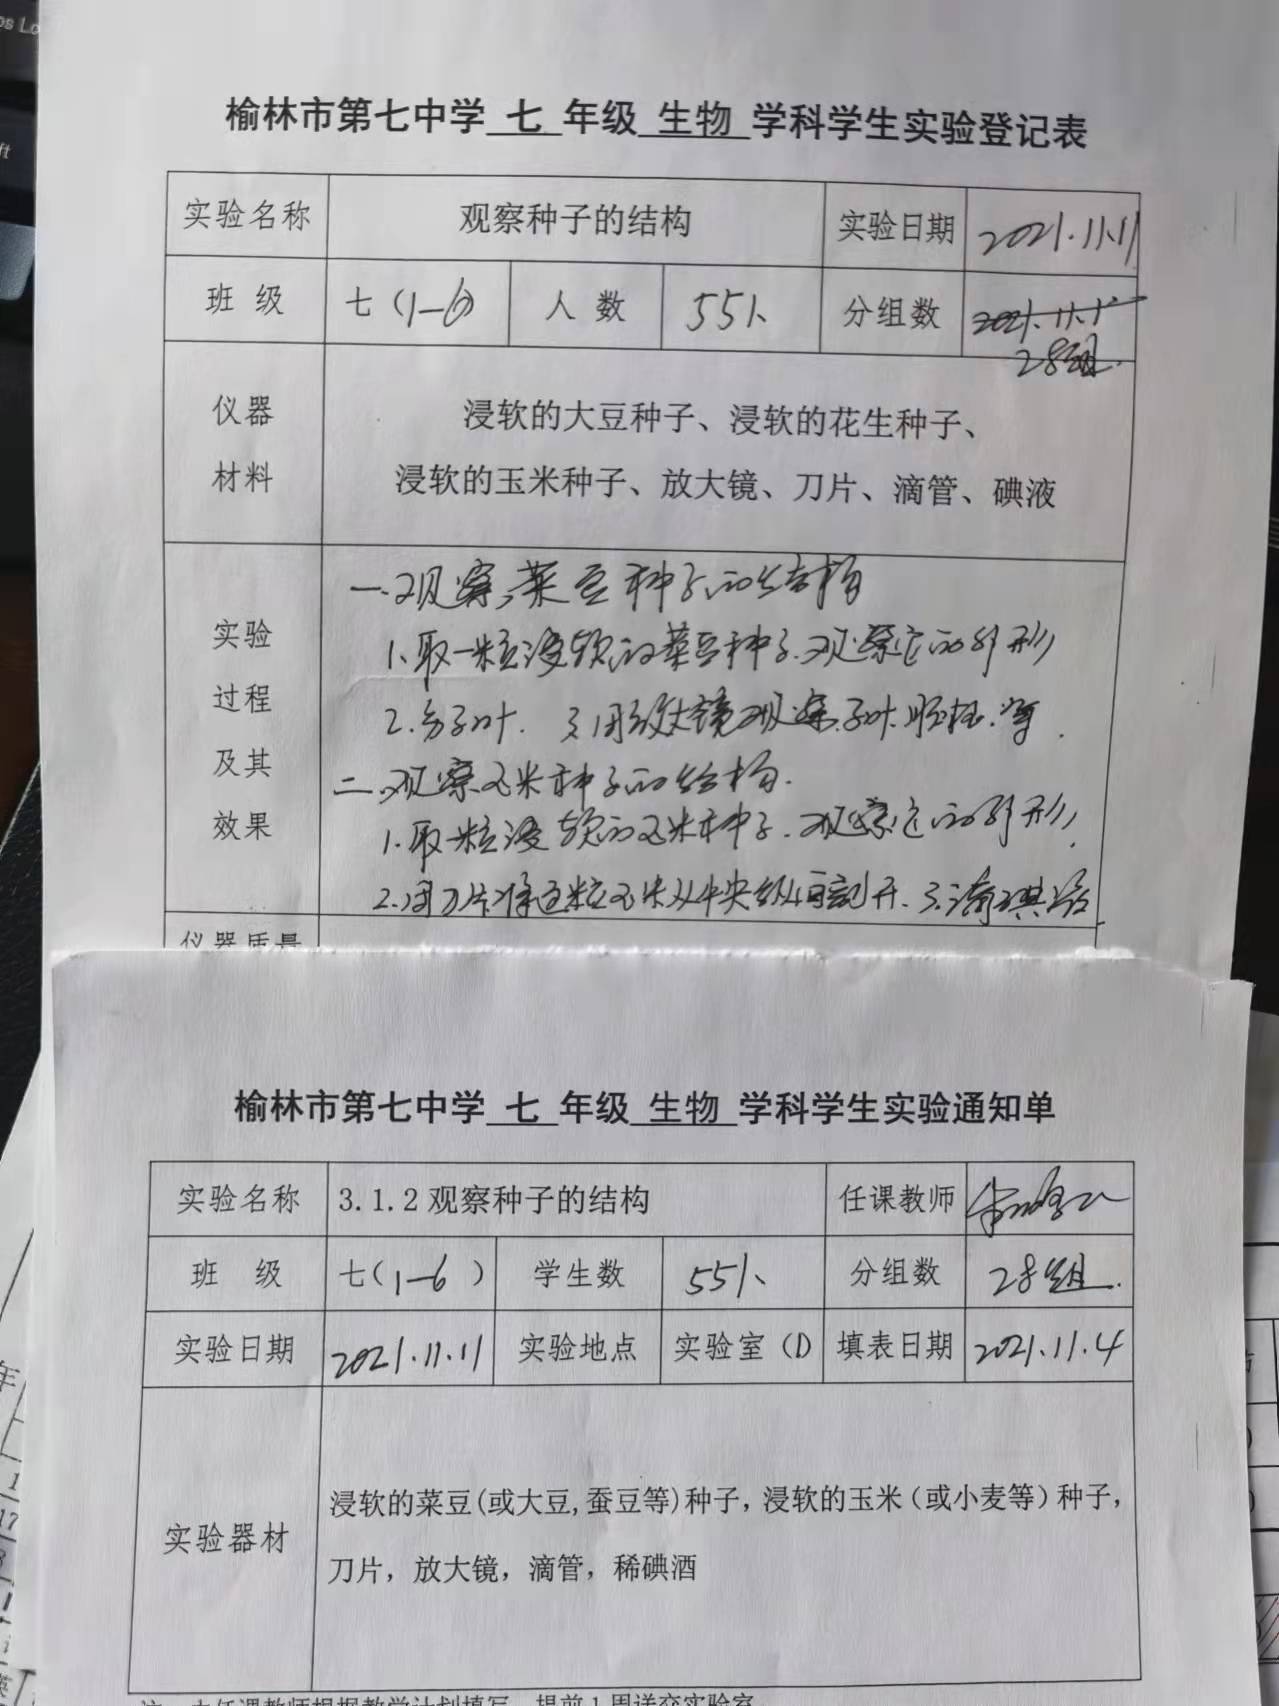 榆林市第七中学 七 年级 生物 学科学生实验登记表
实验名称 观察种子的结构 实验日期 2021.11.11
班 级 七(1-6) 人 数 55人 分组数 2021.11.1
28组.
仪器 浸软的大豆种子、浸软的花生种子、
材料 浸软的玉米种子、放大镜、刀片、滴管、碘液
实验
过程
及其
效果
一.观察菜豆种子的结构
1.取一粒浸软的菜豆种子.观察它的外形
2.分子叶. 3.用放大镜观察子叶.胚根.等.
二.观察玉米种子的结构.
1.取一粒浸软的玉米种子.观察它的外形,
2.用刀片将这粒玉米从中央纵向剖开.3.滴碘液
仪器质量
榆林市第七中学 七 年级 生物 学科学生实验通知单
实验名称 3.1.2观察种子的结构 任课教师
班 级 七(1-6 ) 学生数 55人 分组数 28组.
实验日期 2021.11.11 实验地点 实验室(1) 填表日期 2021.11.4
实验器材
浸软的菜豆(或大豆,蚕豆等)种子,浸软的玉米(或小麦等)种子,
刀片,放大镜,滴管,稀碘酒